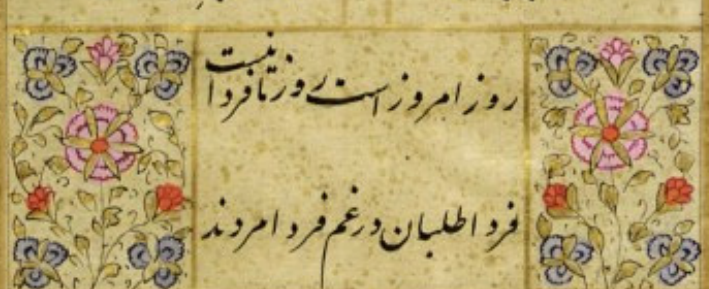 روز امروز است روز ما فردا نیست
فردا طلبان در غم فردا مردند